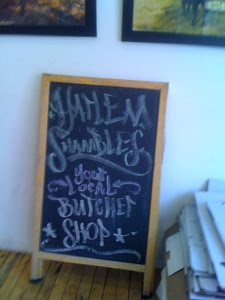 HARLEM
SHAMBLES
YOUR
LOCAL
BUTCHER
SHOP